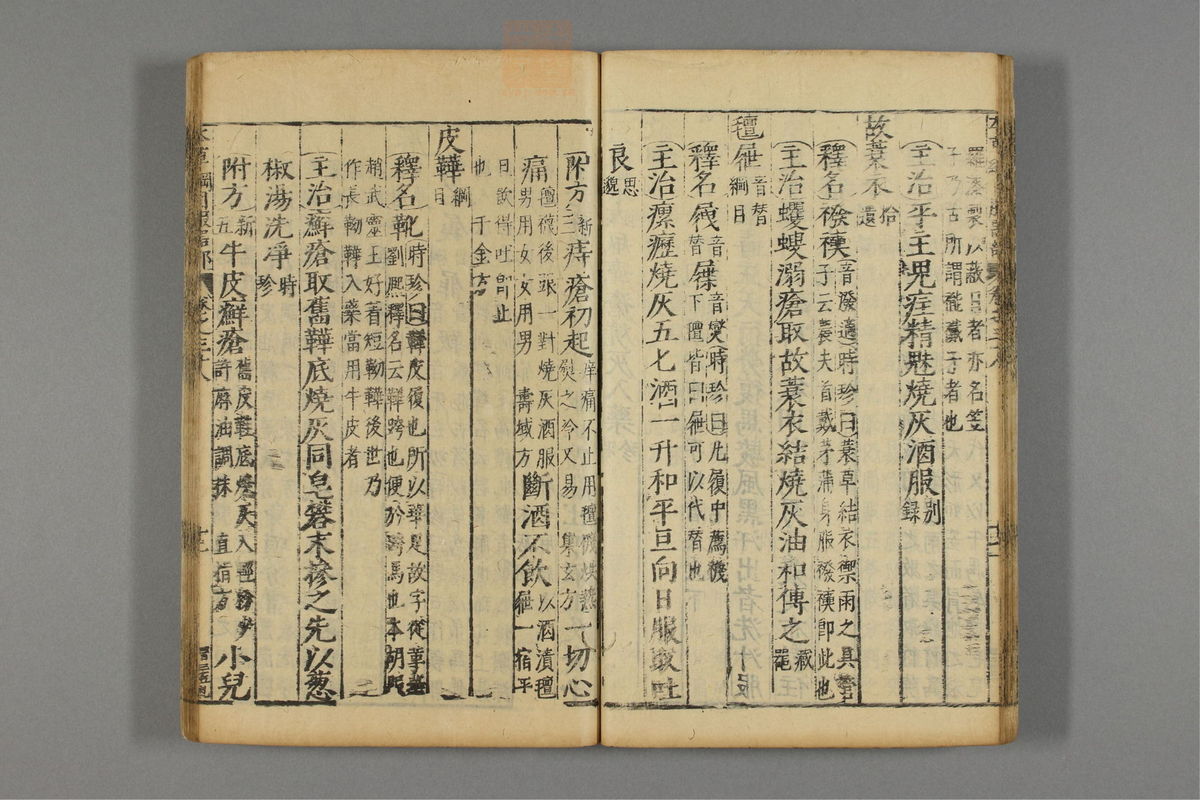 羅氏禦以敵日者亦名笠
子乃古所謂襤襶子者也
主治平主鬼疰精魅燒灰酒服別錄
故蓑衣拾遺
釋名襏襫音潑適時珍曰蓑草結衣禦雨之具管
子云農夫首戴茅蒲身服襏襫即此也
主治蠼螋溺瘡取故蓑衣結燒灰油和傅之藏器
氊屜音替綱目
釋名屟音替屧音燮時珍曰凡履中薦襪
下氊皆曰屜可以代替也
主治瘰癧燒灰五匕酒一升和平旦向日服取吐
良思邈
附方新三痔瘡初起痒痛不止用氊襪烘熱
熨之冷又易集玄方一切心
痛氊襪後跟一對燒灰酒服
男用女女用男壽域方斷酒不飲以酒漬氊
屜一宿平
旦飲得吐即止
也千金方
皮鞾綱目
釋名靴時珍曰鞾皮履也所以華足故字從革華
劉熙釋名云鞾跨也便於跨馬也本胡服
趙武靈王好着短靿鞾後世乃
作長靿鞾入藥當用牛皮者
主治癬瘡取舊鞾底燒灰同皂礬末摻之先以葱
椒湯洗凈時珍
附方新五牛皮癬瘡舊皮鞋底燒灰入輕粉少
許麻油調抹直指方小兒